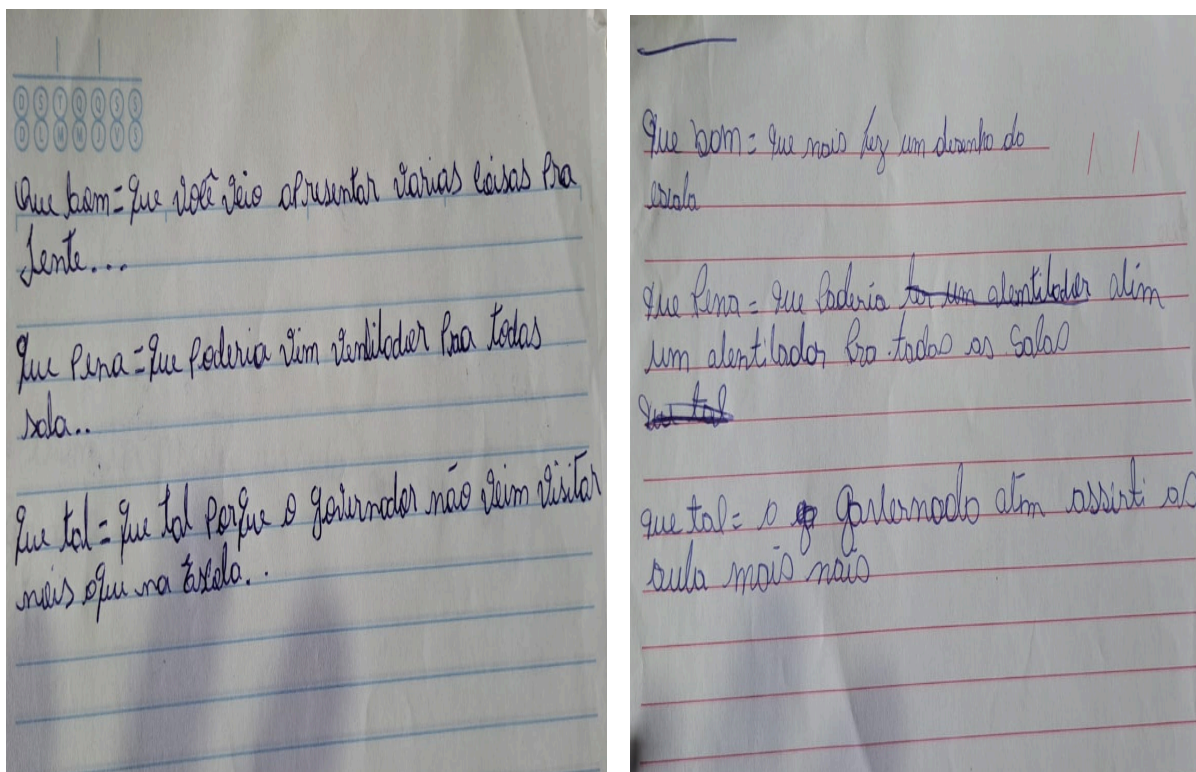 D S T Q Q S S
D L M M J V S
Que bom = que você veio apresentar varias coisas pra
gente...
Que Pena = que poderia vim ventilador pra todas
sala..
Que tal = que tal porque o governador não veim visitar
nois aqui na Escola..
Que bom = que nois fez um desenho do
escola
Que Pena = que poderia ter um alentilador alim
um alentilador pro todas as Salas
que tal
que tal = o go governado alim assisti as
aula mais nois